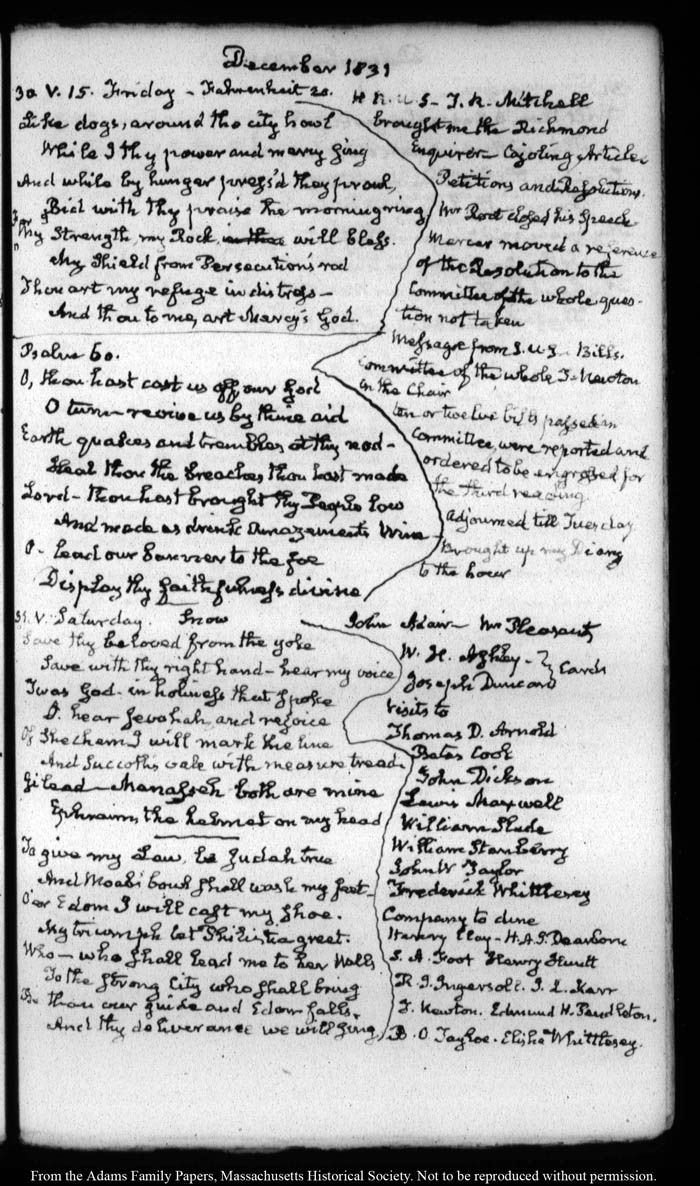 December 1831
30. V. 15. Friday - Fahrenheit 20.
Like dogs, around the city howl
While I thy power and mercy sing
And while by hunger press'd they prowl,
Bid with thy praise the morning ring
For thy Strength, my Rock, will bless.
My Shield from Persecution's rod
Thou art my refuge in distress -
And thou to me, art Mercy's God.
Psalm 60.
O, thou hast cast us off our God
O turn - revive us by thine aid
Earth quakes and trembles at thy nod -
Heal thou the breaches thou hast made
Lord - thou hast brought thy People low
And made us drink Amazements Wine -
O - lead our banner to the foe
Display thy faithfulness divine
H. R. U. S - T. R. Mitchell
brought me the Richmond
Enquirer - Cajoling Articles
Petitions and Resolutions.
Mr Root closed his Speech
Mercer moved a reference
of the Resolution to the
Committee of the whole ques-
tion not taken
Message from S. U. S - Bills.
Committee of the whole T. Newton
in the Chair
ten or twelve bills passed in
Committee, were reported and
ordered to be engrossed for
the third reading.
Adjourned till Tuesday
Brought up my Diary
to the hour
31. V. Saturday. Snow
Save thy beloved from the yoke
Save with thy right hand - hear my voice
Twas God - in holiness that spoke
O. hear Jevohah, and rejoice
Of Shechem I will mark the line
And Succoth's vale with measure tread.
Gilead - Manasseh both are mine
Ephraim, the helmet on my head
To give my Law, be Judah true
And Moab's bowl shall wash my feet -
O'er Edom I will cast my shoe.
My triumph let Philistia greet.
Who - who shall lead me to her Walls
To the strong City who shall bring
Be thou our guide and Edom falls.
And thy deliverance we will sing
John Adair - Mr Pleasants
W. H. Ashley - Cards
Joseph Duncan
Visits to
Thomas D. Arnold
Bates Cook
John Dickson
Lewis Maxwell
William Slade
William Stanberry
John W Taylor
Frederick Whittlesey
Company to dine
Henry Clay - H. A. S. Dearborn
S. A. Foot Henry
R. I. Ingersoll. J. L. Kerr
T. Newton. Edmund H. Pendleton.
B. O Tayloe. Elisha Whittlesey.
From the Adams Family Papers, Massachusetts Historical Society. Not to be reproduced without permission.